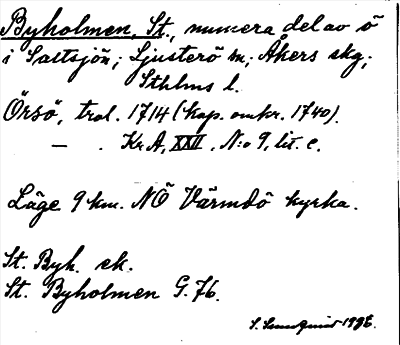 Byholmen, St., numera del av ö
i Saltsjön; Ljusterö sn; Åkers skg;
Sthlms l.
Örsö, trol. 1714 (kop. omkr. 1740).
— . Kr A, XXVI, N:o 9, lit. c.
Läge 9 km. NÖ Värmdö kyrka.
St. Byh. ek.
St. Byholmen G. 76.
S. 1936.